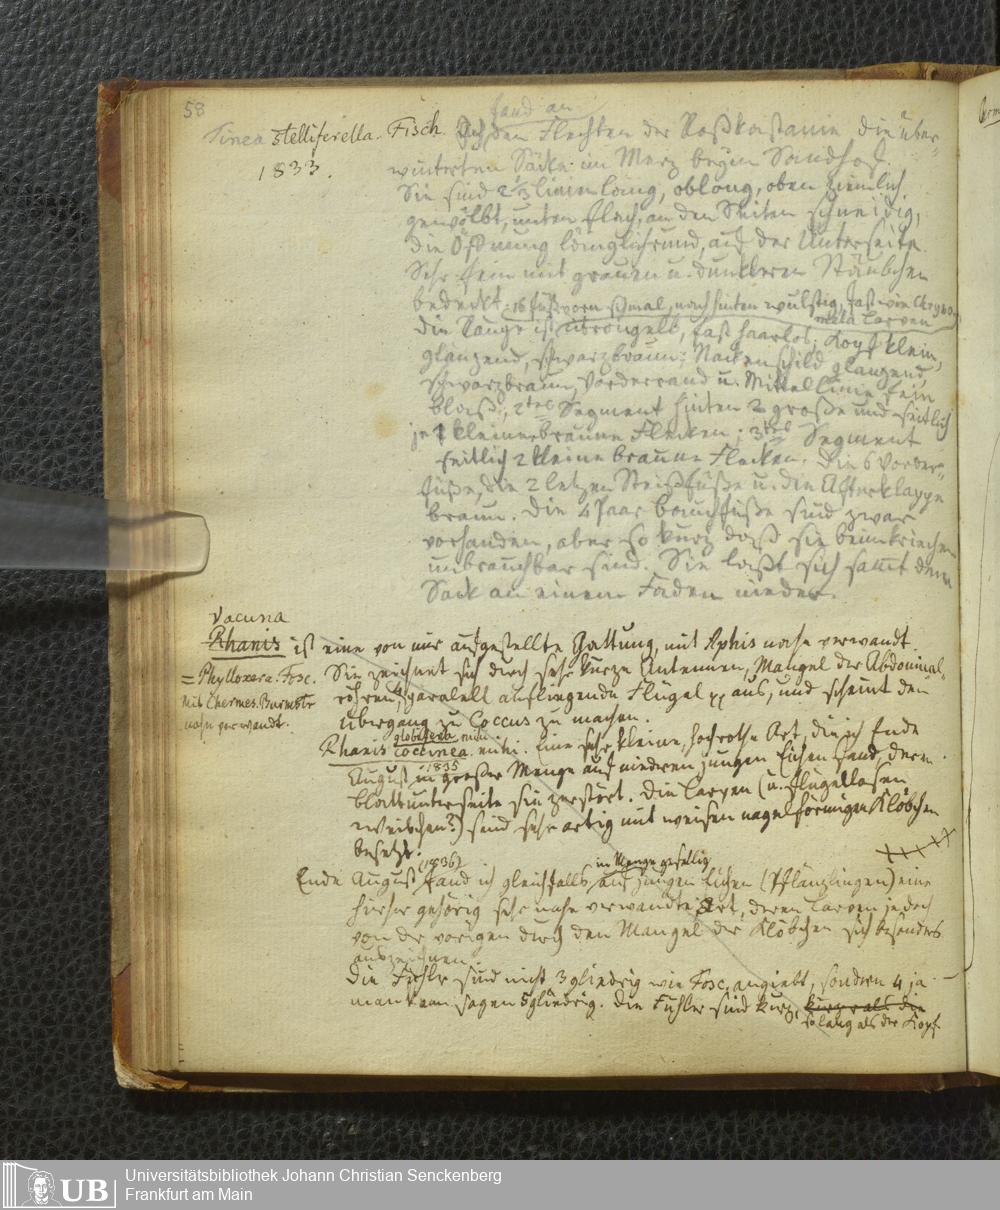 58
fand an
Tinea stelliferella. Fisch. Ich den Flechten der Roßkastanie die über-
1833.
winterten Säcke im Merz beym Sandhof.
Sie sind 2 1/3 Linien lang, oblong, oben ziemlich
gewölbt, unten flach, an den Seiten schneidig,
die Öffnung länglichrund, auf der Unterseite.
Sehr fein mit grauen u. dunkleren Stäubchen
bedeckt. 16 füßig vorn schmal, nach hinten wulstig, fast wie Chryso-
mela Larven
die Raupe ist orangelb, fast haarlos; Kopf klein,
glänzend, schwarzbraun; Nackenschild glänzend
schwarzbraun, Vorderrand u. Mittellinie fein
blaß; 2tes Segment hinten 2 große und seitlich
je 1 kleinen braune Flecken; 3tes Segment
seitlich 2 kleine braune Flecken. Die 6 Vorder-
füße, die 2 letzen Steißfüße u. die Afterklappe
braun. Die 4 Paar Bauchfüße sind zwar
vorhanden, aber so kurz daß sie beim kriechen
unbrauchbar sind. Sie läßt sich samt dem
Sack an einem Faden nieder.
Vacuna
Rhanis ist eine von mir aufgestellte Gattung, mit Aphis nahe verwandt
= Phylloxera. Fosc.
Mit Chermes. Burmstr
nahe verwandt.
Sie zeichnet sich durch sehr kurze Antennen, Mangel der Abdominal-
röhren, paralell aufliegende Flügel pp aus, und scheint den
Übergang zu Coccus zu machen.
globifera mihi
Rhanis coccinea. mihi. Eine sehr kleine, hochrothe Art, die ich Ende
1835
August in großer Menge auf niederen jungen Eichen fand, deren
Blattunterseite sie zerstört. Die Larven (u. flügellosen
Weibchen?) sind sehr artig mit weisen nagelförmigen Klöbchen
besetzt.
(1836) in Menge gesellig
Ende August fand ich gleichfalls auf jungen Eichen (Pflänzlingen) eine
hierher gehörig sehr nahe verwandte Art, deren Larven jedoch
von der vorigen durch den Mangel der Klöbchen sich besonders
auszeichnen.
Die Fühler sind nicht 3gliedrig wie Fosc. angiebt, sondern 4 ja
man kann sagen 5gliedrig. Die Fühler sind kurz, kurz als die
so lang als der Kopf
UB
Universitätsbibliothek Johann Christian Senckenberg
Frankfurt am Main